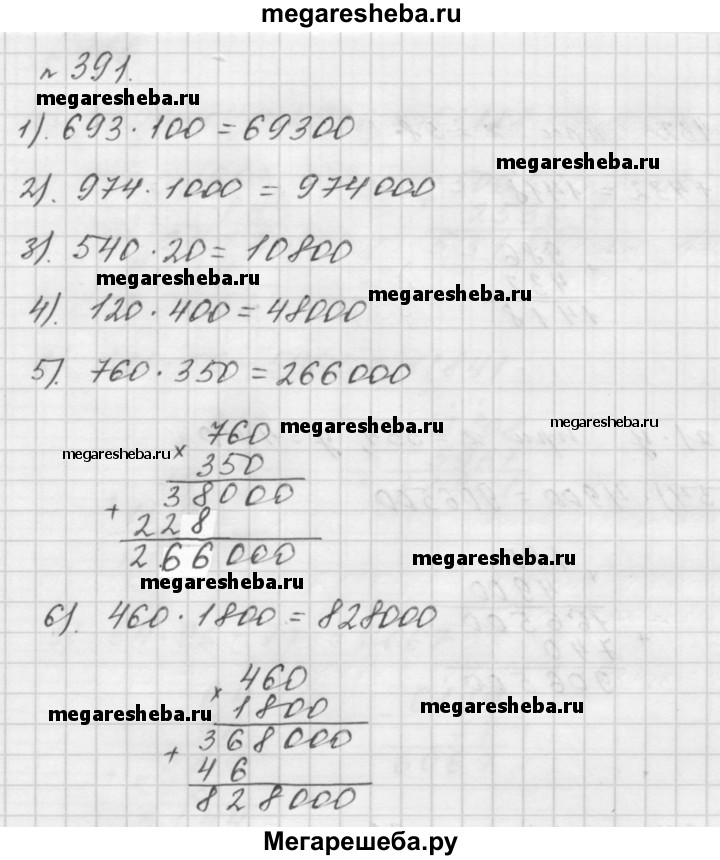 megaresheba.ru
№ 391.
megaresheba.ru
1). 693 · 100 = 69300
megaresheba.ru
2). 974 · 1000 = 974000
3). 540 · 20 = 10800
megaresheba.ru
megaresheba.ru
4). 120 · 400 = 48000
5). 760 · 350 = 266000
megaresheba.ru
760
megaresheba.ru
megaresheba.ru
× 350
38000
+ 228
266000
megaresheba.ru
megaresheba.ru
6). 460 · 1800 = 828000
460
× 1800
megaresheba.ru
megaresheba.ru
368000
+ 46
828000
Мегарешеба.ру